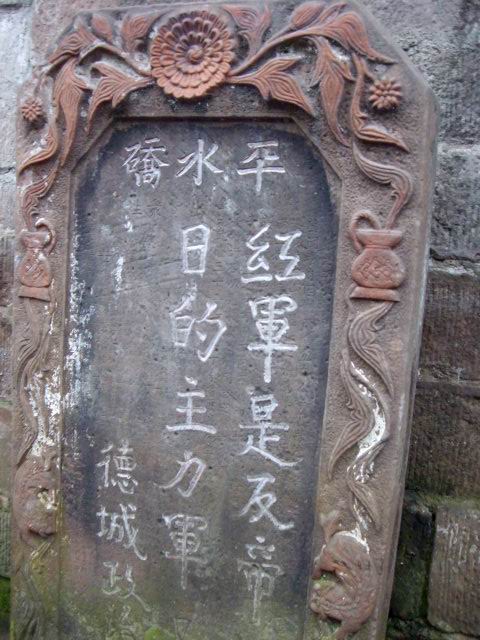 平水礄
紅軍是反帝
日的主力軍
德城政